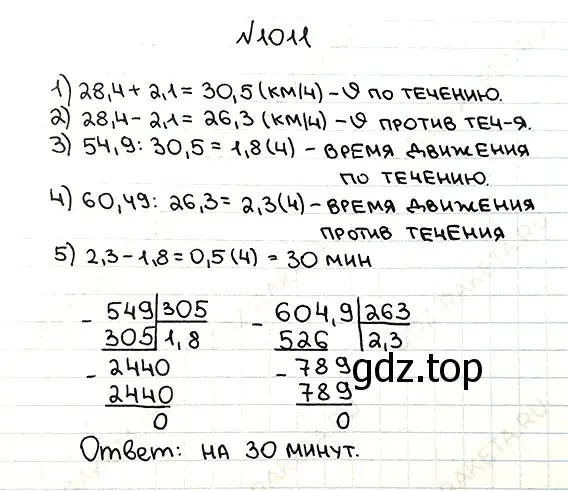 №1011
1) 28,4 + 2,1 = 30,5 (км/ч) - υ по течению.
2) 28,4 - 2,1 = 26,3 (км/ч) - υ против теч-я.
3) 54,9 : 30,5 = 1,8 (ч) - время движения
по течению.
4) 60,49 : 26,3 = 2,3 (ч) - время движения
против течения
5) 2,3 - 1,8 = 0,5 (ч) = 30 мин
- 549 | 305 - 604,9 | 263
305 | 1,8 526 | 2,3
- 2440 - 789
2440 789
0 0
gdz.top
Ответ: на 30 минут.